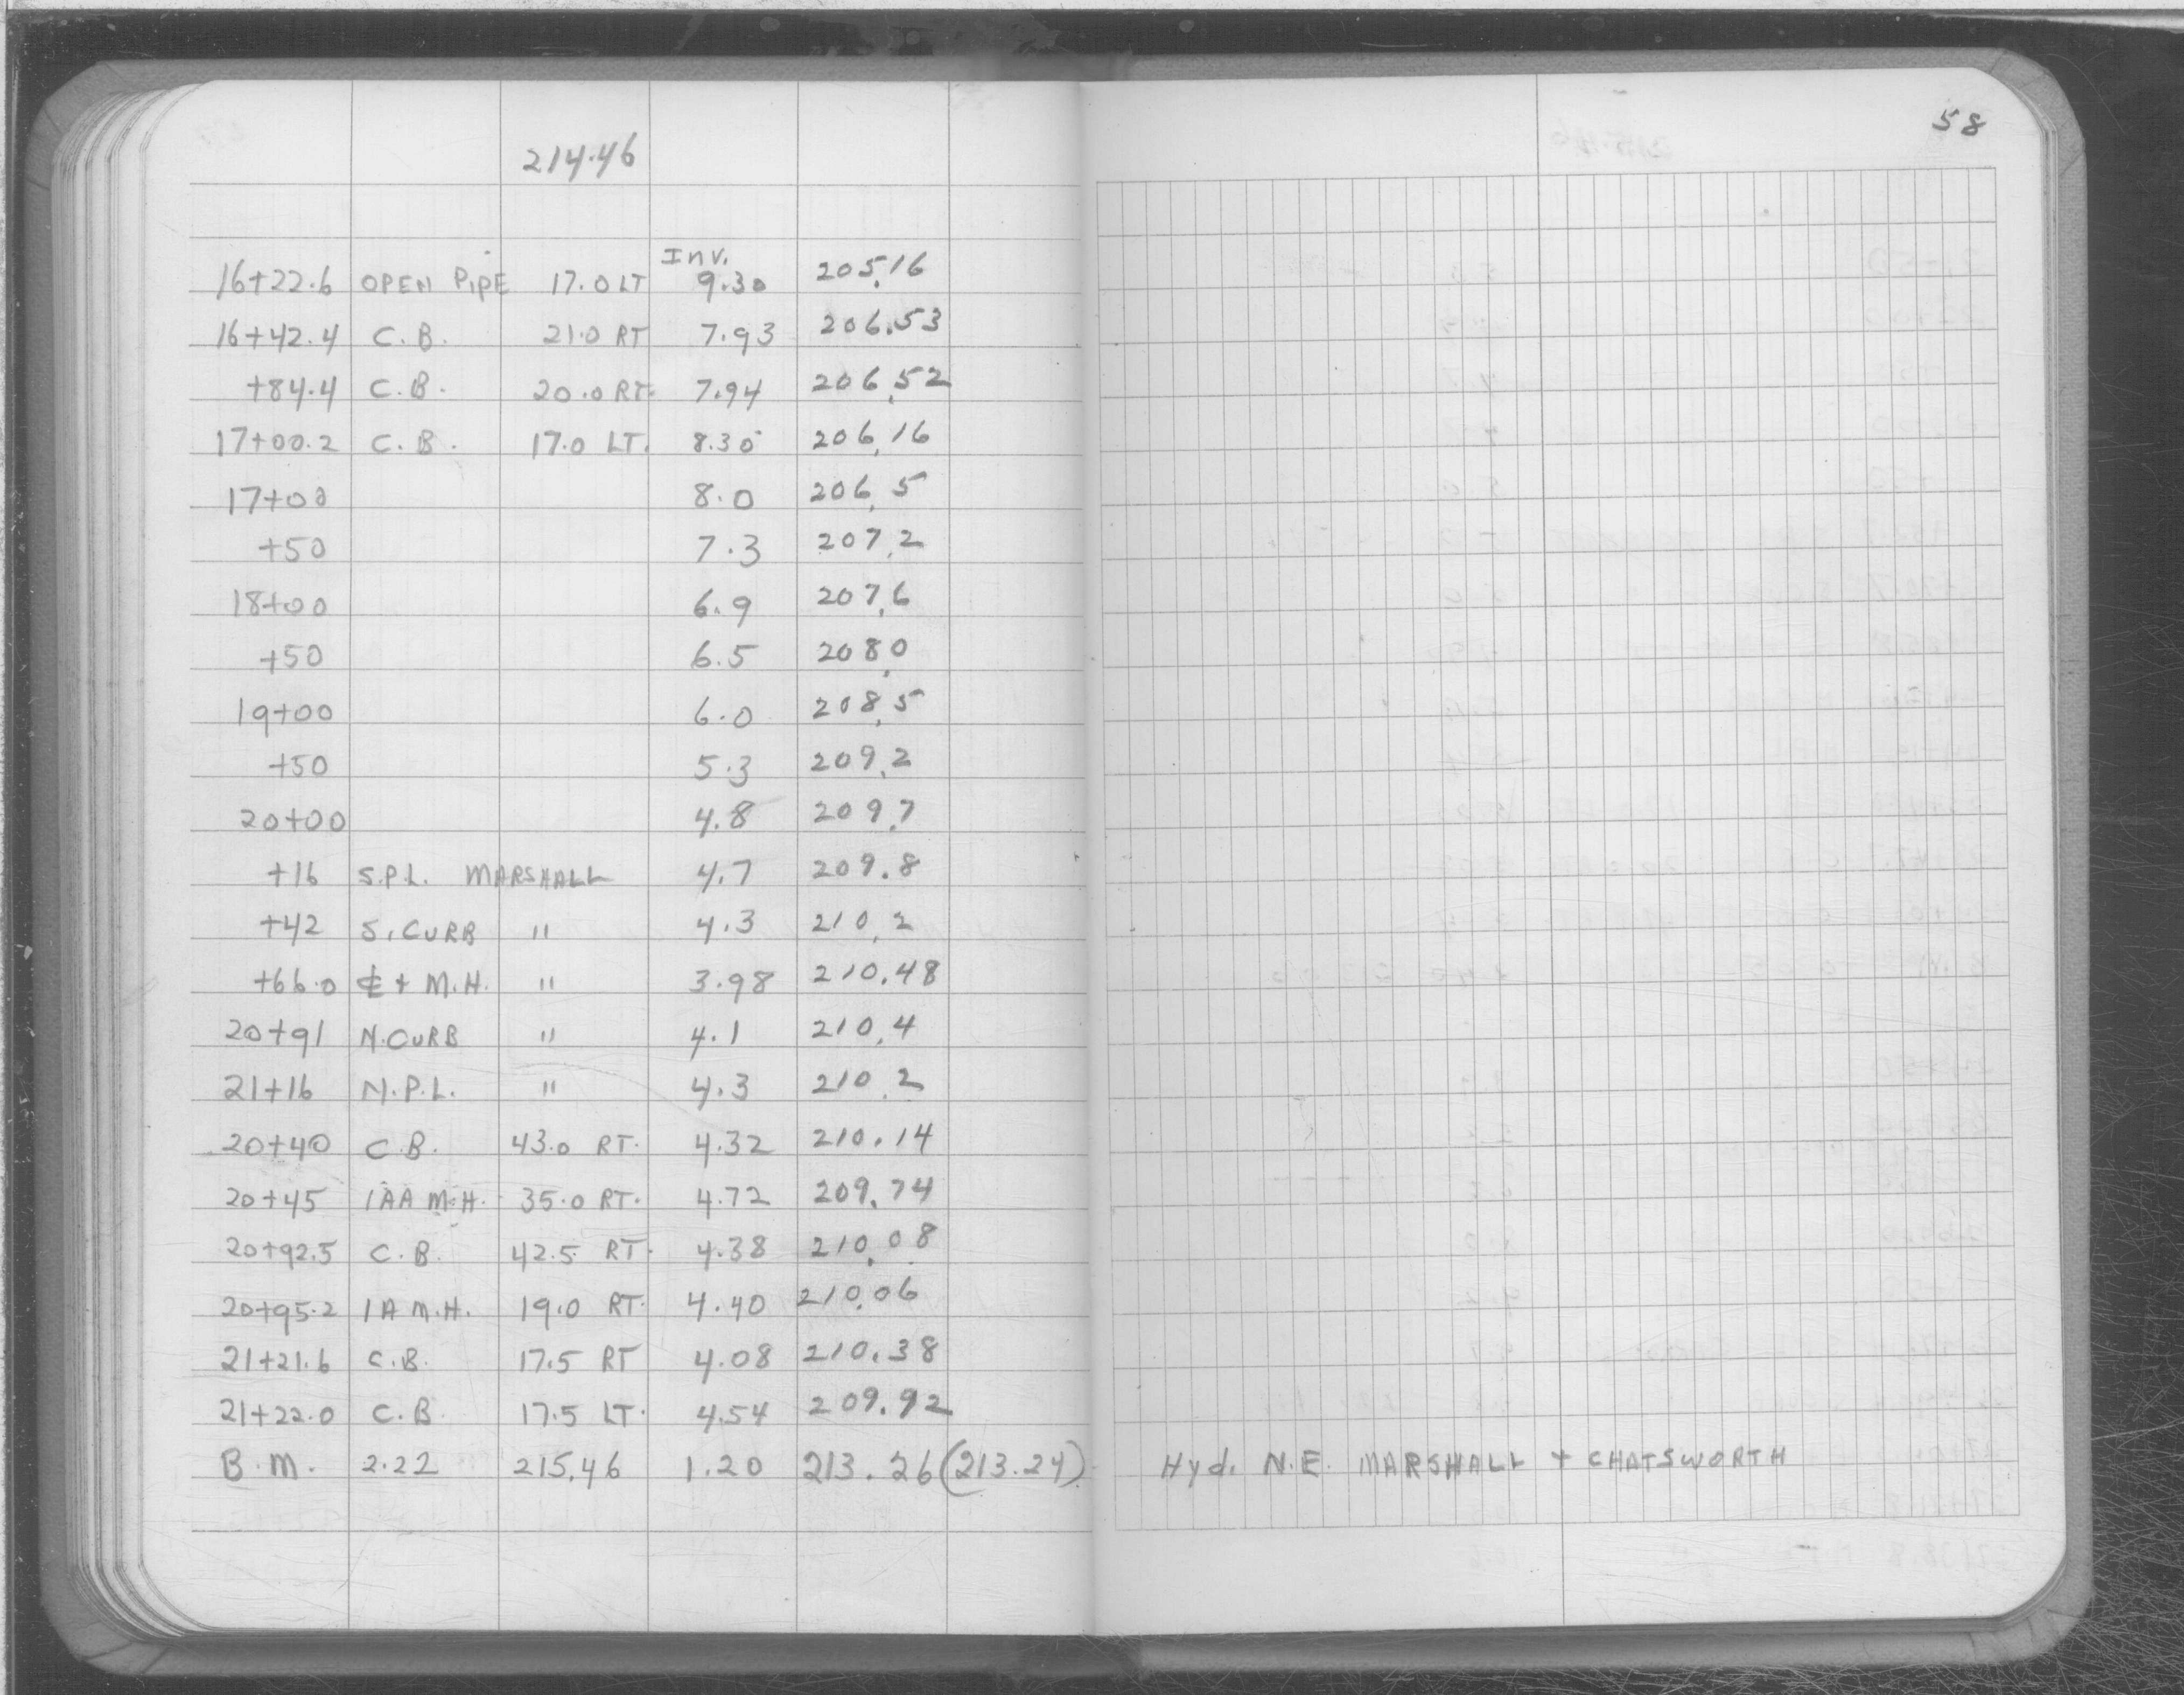 58
214.46
Inv.
16+22.6 OPEN PIPE 17.0 LT 9.30 205.16
16+42.4 C.B. 21.0 RT 7.93 206.53
+84.4 C.B. 20.0 RT. 7.94 206.52
17+00.2 C.B. 17.0 LT. 8.30 206.16
17+00 8.0 206.5
+50 7.3 207.2
18+00 6.9 207.6
+50 6.5 208.0
19+00 6.0 208.5
+50 5.3 209.2
20+00 4.8 209.7
+16 S.P.L. MARSHALL 4.7 209.8
+42 S. CURB " 4.3 210.2
+66.0 ⅊ + M.H. " 3.98 210.48
20+91 N. CURB " 4.1 210.4
21+16 N.P.L. " 4.3 210.2
20+40 C.B. 43.0 RT. 4.32 210.14
20+45 1AA M.H. 35.0 RT. 4.72 209.74
20+92.5 C.B. 42.5 RT. 4.38 210.08
20+95.2 1A M.H. 19.0 RT. 4.40 210.06
21+21.6 C.B. 17.5 RT 4.08 210.38
21+22.0 C.B. 17.5 LT. 4.54 209.92
B.M. 2.22 215.46 1.20 213.26 (213.24) Hyd. N.E. MARSHALL + CHATSWORTH